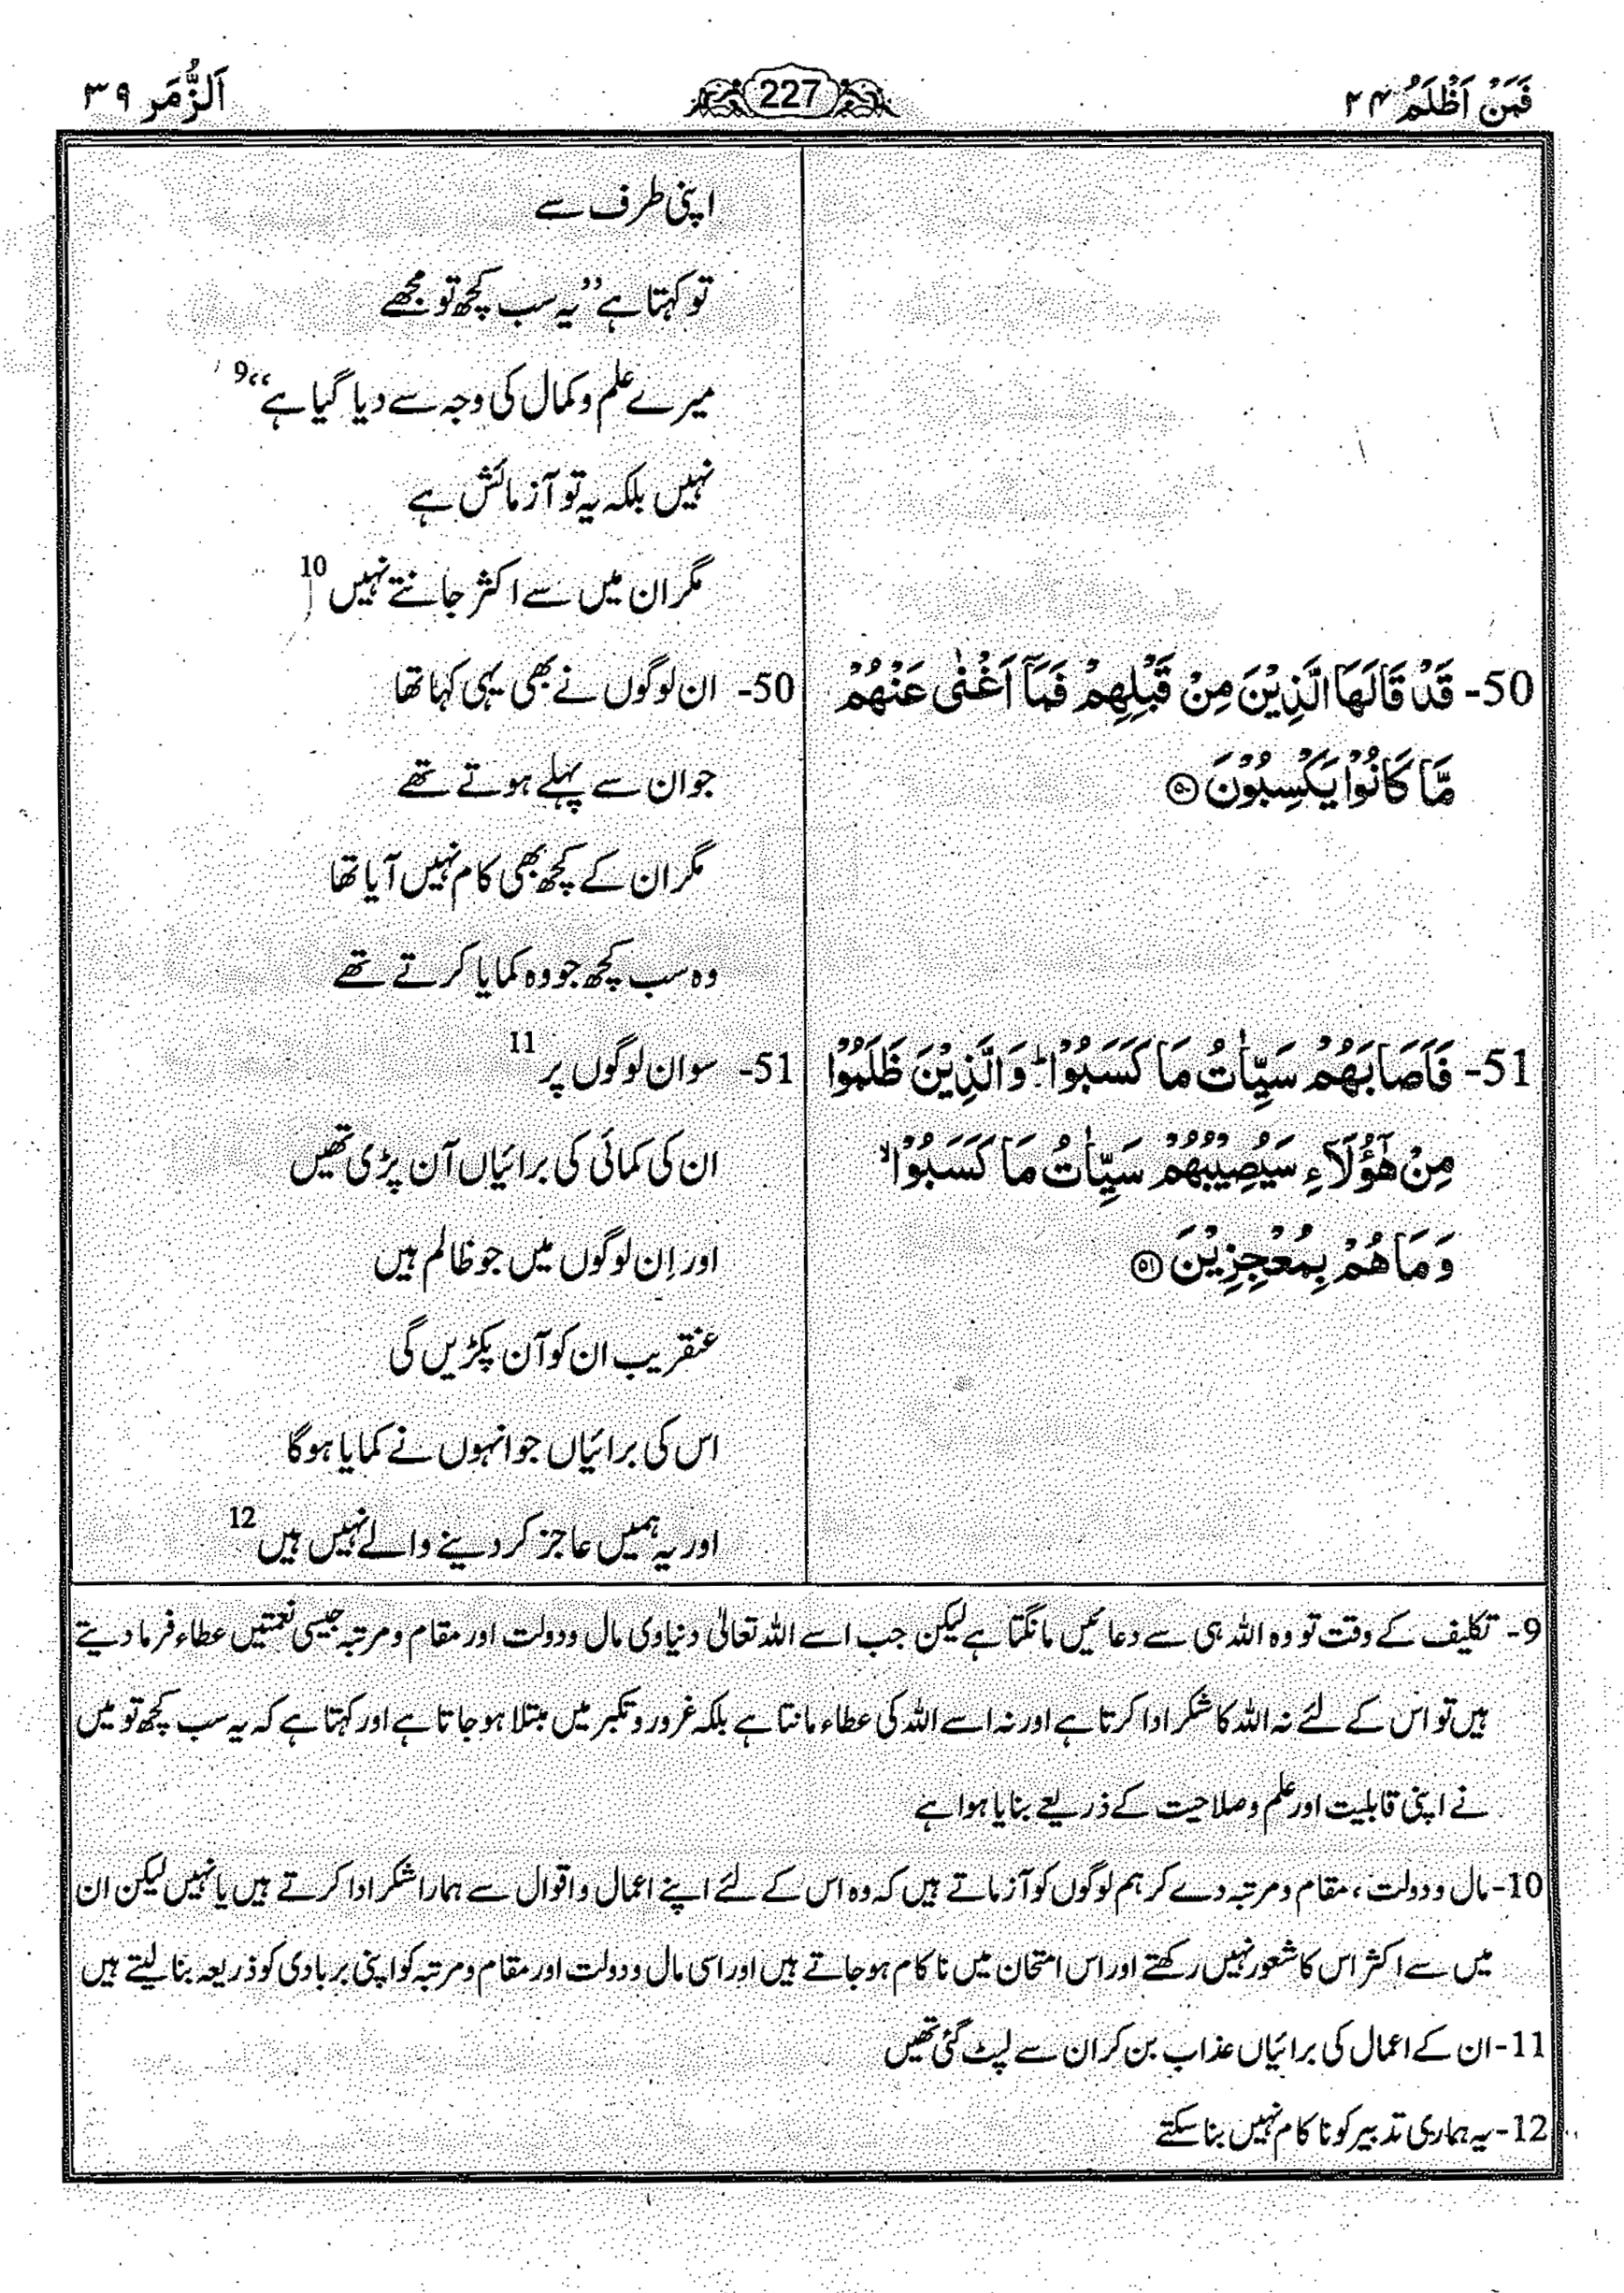 فَمَنْ اَظْلَمُ ۲۴
227
اَلزُّمَر ۳۹
اپنی طرف سے
تو کہتا ہے ’’یہ سب کچھ تو مجھے
میرے علم و کمال کی وجہ سے دیا گیا ہے‘‘ 9
نہیں بلکہ یہ تو آزمائش ہے
مگر ان میں سے اکثر جانتے نہیں 10
50- قَدْ قَالَهَا الَّذِيْنَ مِنْ قَبْلِهِمْ فَمَآ اَغْنٰى عَنْهُمْ
مَّا كَانُوْا يَكْسِبُوْنَ ۝۵۰
50- ان لوگوں نے بھی یہی کہا تھا
جو ان سے پہلے ہوتے تھے
مگر ان کے کچھ بھی کام نہیں آیا تھا
وہ سب کچھ جو وہ کمایا کرتے تھے
51- فَاَصَابَهُمْ سَيِّاٰتُ مَا كَسَبُوْا ؕ وَالَّذِيْنَ ظَلَمُوْا
مِنْ هٰٓؤُلَآءِ سَيُصِيْبُهُمْ سَيِّاٰتُ مَا كَسَبُوْا ۙ
وَمَا هُمْ بِمُعْجِزِيْنَ ۝۵۱
51- سو ان لوگوں پر 11
ان کی کمائی کی برائیاں آن پڑی تھیں
اور اِن لوگوں میں جو ظالم ہیں
عنقریب ان کو آن پکڑیں گی
اس کی برائیاں جو انہوں نے کمایا ہوگا
اور یہ ہمیں عاجز کر دینے والے نہیں ہیں 12
9- تکلیف کے وقت تو وہ اللہ ہی سے دعائیں مانگتا ہے لیکن جب اسے اللہ تعالیٰ دنیاوی مال و دولت اور مقام و مرتبہ جیسی نعمتیں عطاء فرما دیتے
ہیں تو اس کے لئے نہ اللہ کا شکر ادا کرتا ہے اور نہ اسے اللہ کی عطاء مانتا ہے بلکہ غرور و تکبر میں مبتلا ہو جاتا ہے اور کہتا ہے کہ یہ سب کچھ تو میں
نے اپنی قابلیت اور علم و صلاحیت کے ذریعے بنایا ہوا ہے
10- مال و دولت، مقام و مرتبہ دے کر ہم لوگوں کو آزماتے ہیں کہ وہ اس کے لئے اپنے اعمال و اقوال سے ہمارا شکر ادا کرتے ہیں یا نہیں لیکن ان
میں سے اکثر اس کا شعور نہیں رکھتے اور اس امتحان میں ناکام ہو جاتے ہیں اور اسی مال و دولت اور مقام و مرتبہ کو اپنی بربادی کو ذریعہ بنا لیتے ہیں
11- ان کے اعمال کی برائیاں عذاب بن کر ان سے لپٹ گئی تھیں
12- یہ ہماری تدبیر کو ناکام نہیں بنا سکتے